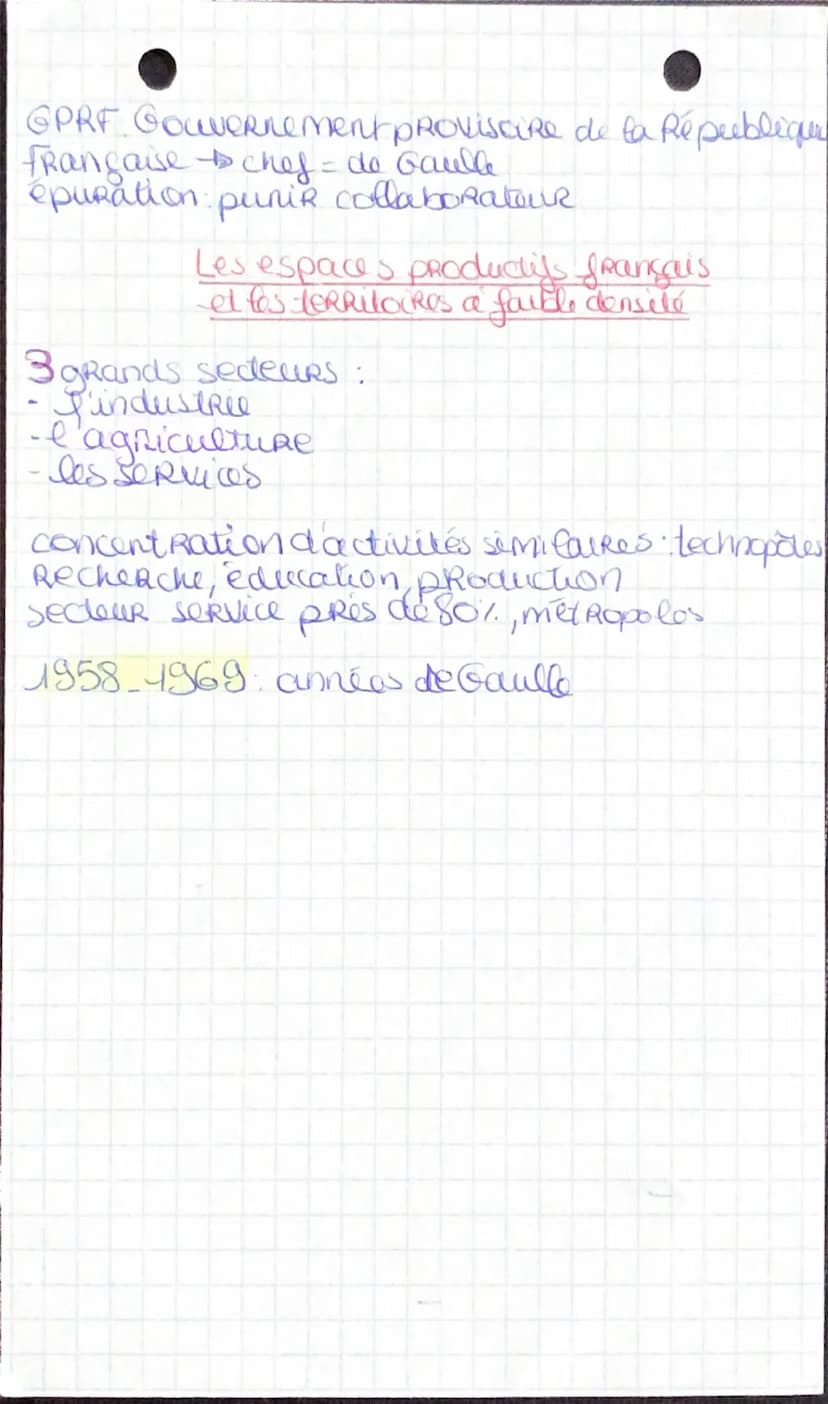 GPRF Gouvernement provisoire de la République
française → chef = de Gaulle
épuration : punir collaborateur
Les espaces productifs français
et les territoires à faible densité
3 grands secteurs :
- l'industrie
- l'agriculture
- les services
concentration d'activités similaires : technopôles
Recherche, éducation, production
secteur service près de 80%, métropoles
1958-1969 : années de Gaulle